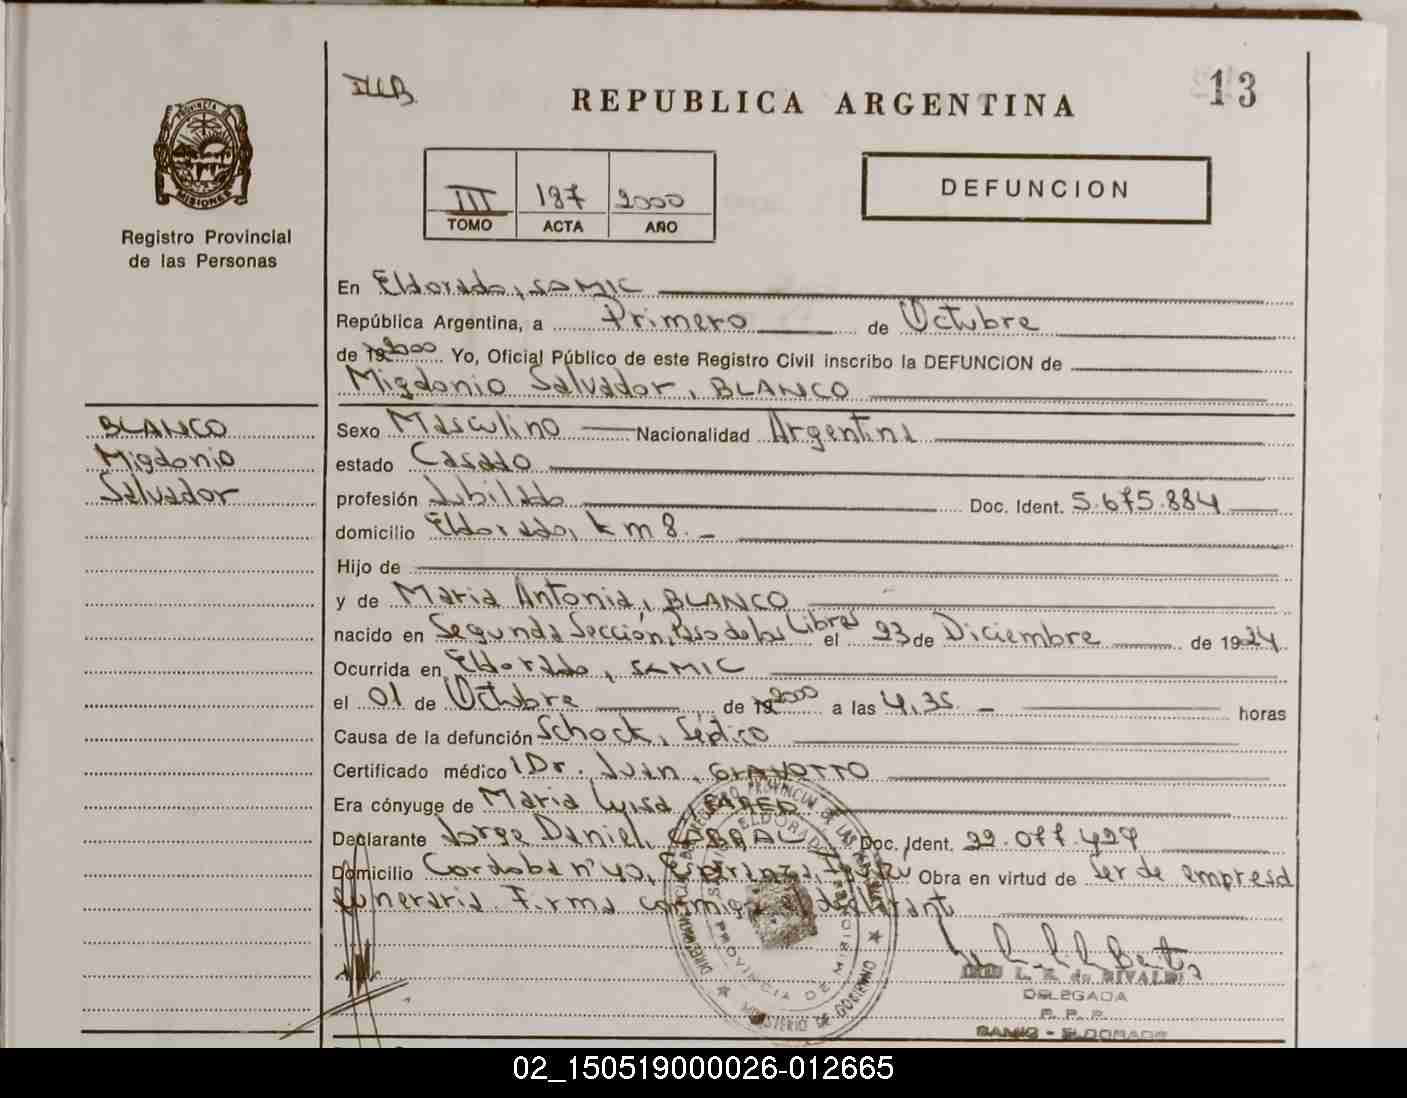 13
REPUBLICA ARGENTINA
PROVINCIA
MISIONES
Registro Provincial
de las Personas
III 187 2000
TOMO ACTA AÑO
DEFUNCION
En Eldorado, SAMIC
República Argentina, a Primero de Octubre
de 19 2000 Yo, Oficial Público de este Registro Civil inscribo la DEFUNCION de
Migdonio Salvador, BLANCO
BLANCO
Migdonio
Salvador
Sexo Masculino Nacionalidad Argentina
estado Casado
profesión Jubilado Doc. Ident. 5.675.884
domicilio Eldorado, km 8.
Hijo de
y de Maria Antonia, BLANCO
nacido en Segunda Sección, Paso de los Libres el 23 de Diciembre de 1924
Ocurrida en Eldorado, SAMIC
el 01 de Octubre de 19 2000 a las 4,35 horas
Causa de la defunción Schock, Séptico
Certificado médico Dr. Juan, GIAVOTTO
Era cónyuge de Maria Luisa,
Declarante Jorge Daniel, CABRAL Doc. Ident. 22.077.427
Domicilio Cordoba nº 40, Obra en virtud de Ser de empresa
funeraria. Firma conmigo el declarante
L. E. de RIVALDI
DELEGADA
R. P. P.
SAMIC - ELDORADO
PROVINCIA DE MISIONES
MINISTERIO DE GOBIERNO
02_150519000026-012665